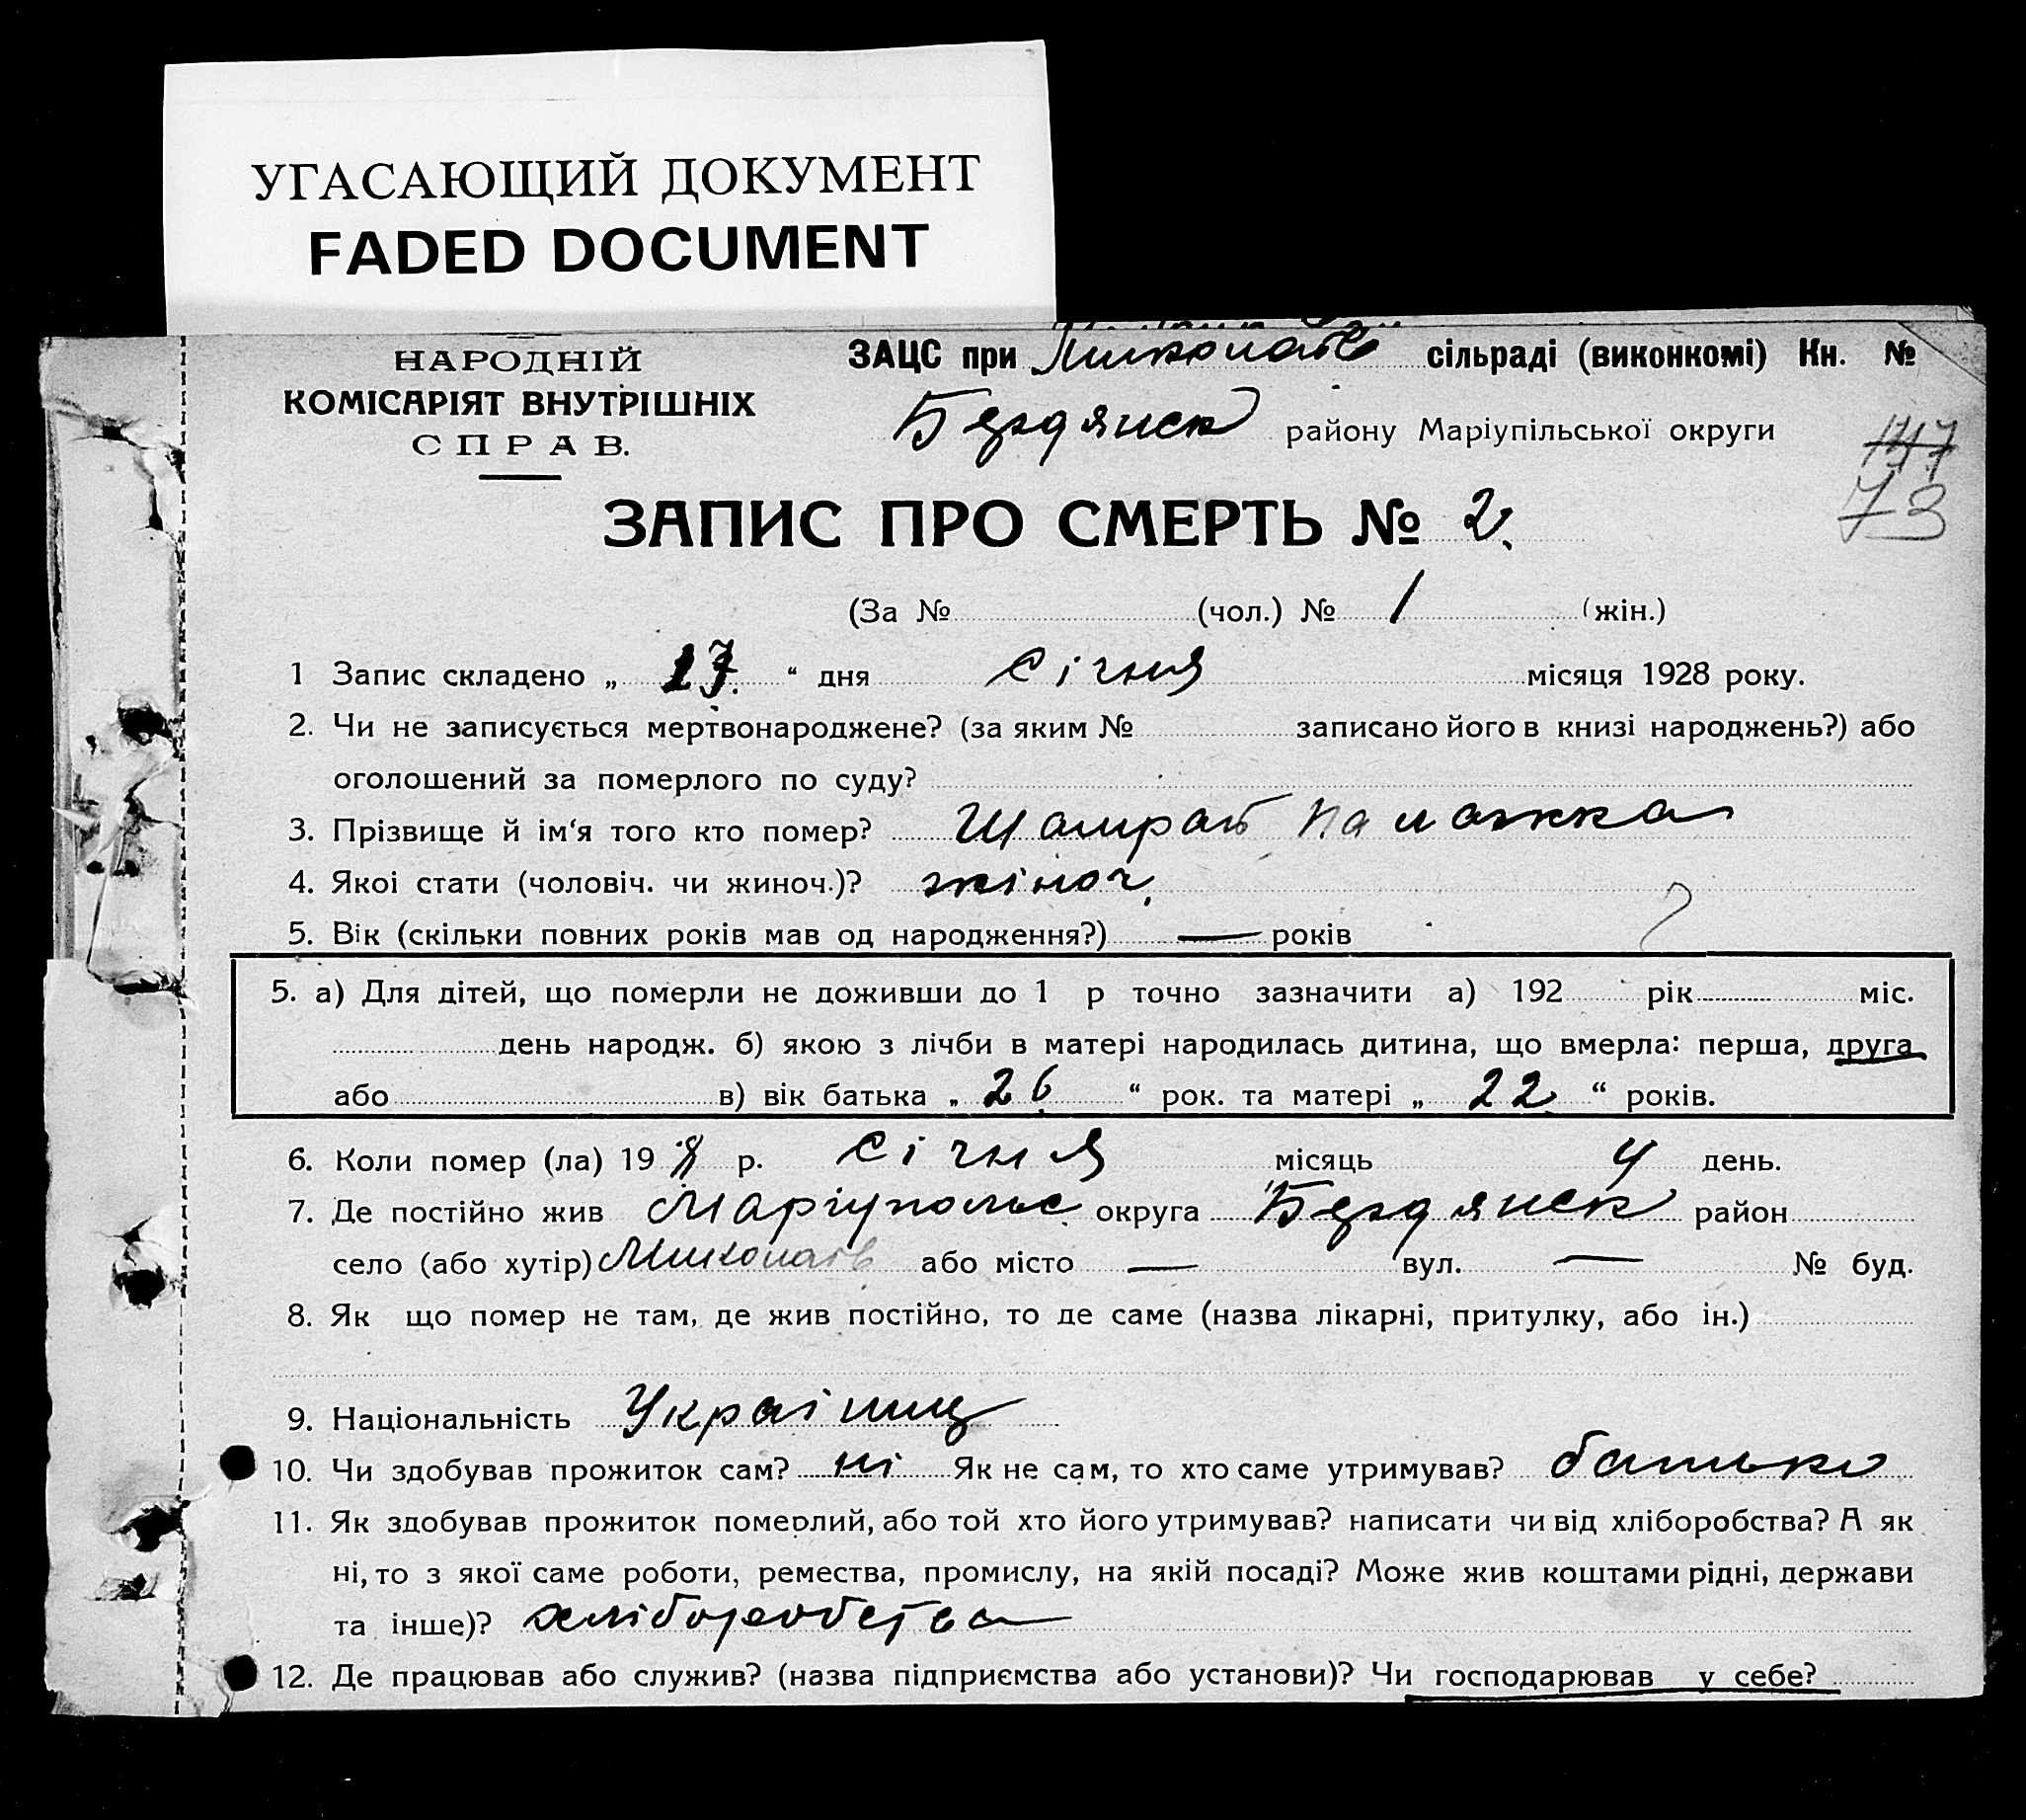 УГАСАЮЩИЙ ДОКУМЕНТ
FADED DOCUMENT
НАРОДНІЙ
КОМІСАРІЯТ ВНУТРІШНІХ
СПРАВ.
ЗАЦС при Миколаїв сільраді (виконкомі) Кн. №
Бердянск району Маріупільської округи
147
73
ЗАПИС ПРО СМЕРТЬ № 2.
(За № (чол.) № 1 (жін.)
1 Запис складено „ 17. “ дня січня місяця 1928 року.
2. Чи не записується мертвонароджене? (за яким № записано його в книзі народжень?) або
оголошений за померлого по суду?
3. Прізвище й ім‘я того кто помер? Шамрай
4. Якоі стати (чоловіч. чи жиноч.)? жіноч.
5. Вік (скільки повних років мав од народження?) — років
5. а) Для дітей, що померли не доживши до 1 р точно зазначити а) 192 рік міс.
день народж. б) якою з лічби в матері народилась дитина, що вмерла: перша, друга
або в) вік батька „ 26 “ рок. та матері „ 22 “ років.
6. Коли помер (ла) 19 28 р. січня місяць 4 день.
7. Де постійно жив Маріупольс округа Бердянск район
село (або хутір) Миколаїв або місто — вул. — № буд.
8. Як що помер не там, де жив постійно, то де саме (назва лікарні, притулку, або ін.)
9. Національність Україниц
10. Чи здобував прожиток сам? ні Як не сам, то хто саме утримував? батько
11. Як здобував прожиток померлий, або той хто його утримував? написати чи від хліборобства? А як
ні, то з якої саме роботи, ремества, промислу, на якій посаді? Може жив коштами рідні, держави
та інше)? хліборобства
12. Де працював або служив? (назва підприємства або установи)? Чи господарював у себе?